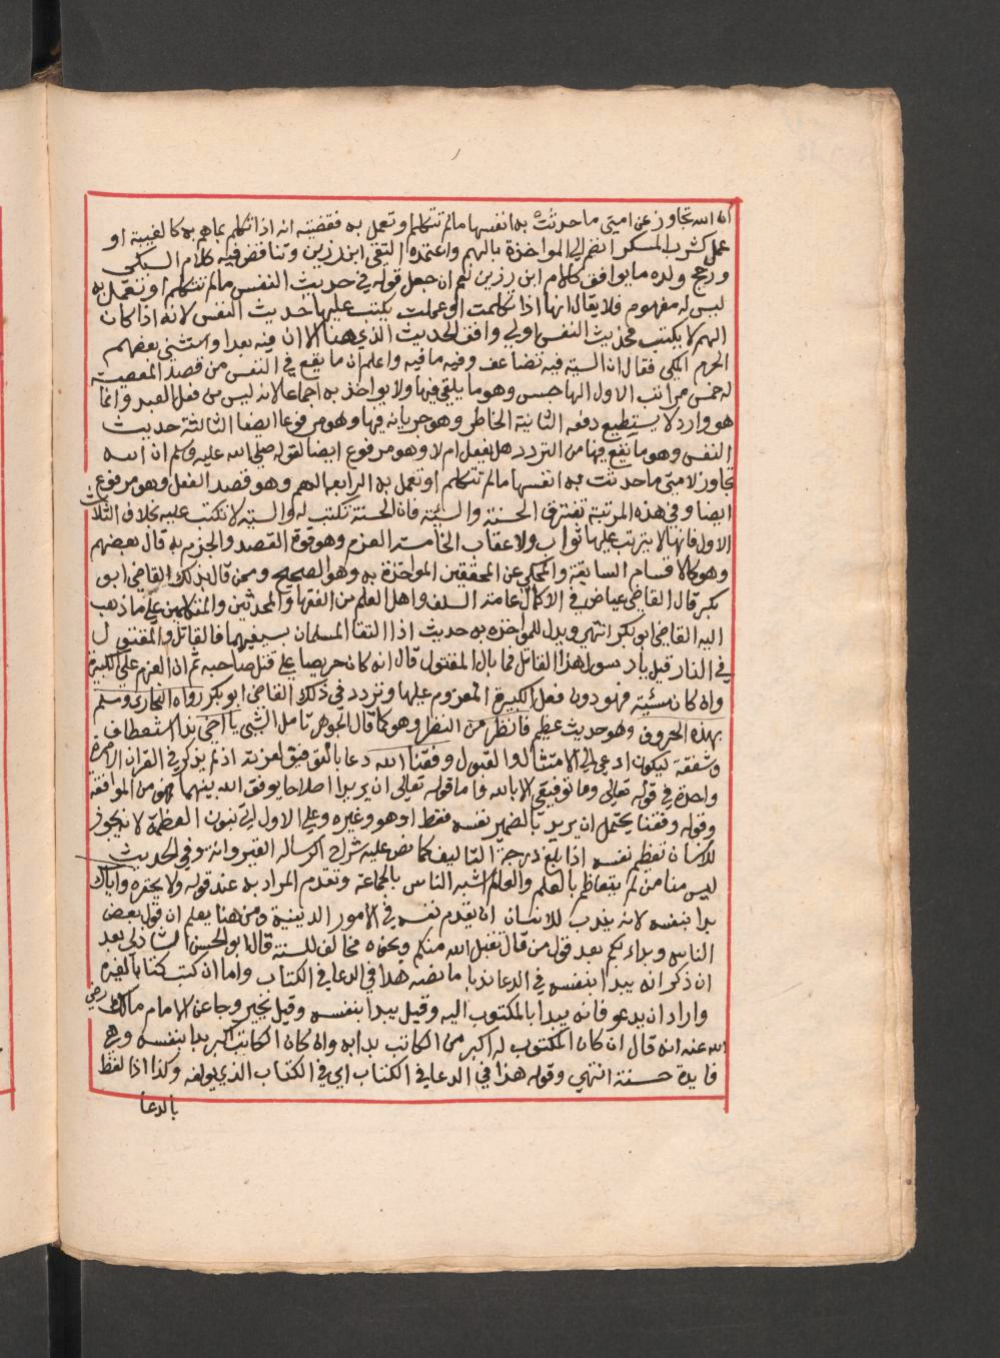 ان الله تجاوز عن امتي ما حدثت به انفسها مالم تتكلم او تعمل به فقضيته انه اذا تكلم بما هم به كالغيبة او
عمل كشرب المسكر انضم الي المواخذة بالهم واعتمده التقي ابن رزين وتناقض فيه كلام السبكي
ورجح ولده ما يوافق كلام ابن رزين نعم ان جعل قوله في حديث النفس مالم تتكلم او تعمل به
ليس له مفهوم فلا يقال انها اذا تكلمت او عملت يكتب عليها حديث النفس لانه اذا كان
الهم لا يكتب فحديث النفس اولي وافق الحديث الذي هنا الا ان فيه بعدا واستثني بعضهم
الحرم المكي فقال ان السيئة فيه تضاعف وفيه ما فيه واعلم ان ما يقع في النفس من قصد المعصية
له خمس مراتب الاول الهاجس وهو ما يلقي فيها ولا يواخذ به اجماعا لانه ليس من فعل العبد وانما
هو وارد لا يستطيع دفعه الثانية الخاطر وهو جريانه فيها وهو مرفوع ايضا الثالثة حديث
النفس وهو ما يقع فيها من التردد هل يفعل ام لا وهو مرفوع ايضا لقوله صلي الله عليه وسلم ان الله
تجاوز لامتي ما حدثت به انفسها مالم تتكلم او تعمل به الرابعة الهم وهو قصد الفعل وهو مرفوع
ايضا وفي هذه المرتبة تفترق الحسنة والسيئة فان الحسنة تكتب له والسيئة لا تكتب عليه بخلاف الثلاث
الاول فانها لا يترتب عليها ثواب ولا عقاب الخامسة العزم وهو قوة القصد والجزم به قال بعضهم
وهو كالاقسام السابقة والمحكي عن المحققين المواخذة به وهو الصحيح وممن قال بذلك القاضي ابو
بكر قال القاضي عياض في الاكمال عامة السلف واهل العلم من الفقها والمحدثين والمتكلمين علي ما ذهب
اليه القاضي ابو بكر انتهي ويدل للمواخذه به حديث اذا التقا المسلمان بسيفيهما فالقاتل والمقتول
في النار قيل يا رسول هذا القاتل فما بال المقتول قال انه كان حريصا علي قتل صاحبه ثم ان العزم علي الكبيرة
وان كان سيئة فهو دون فعل الكبيرة المعزوم عليها وتردد في ذلك القاضي ابو بكر رواه البخاري ومسلم
بهذه الحروف وهو حديث عظيم فانظر من النظر وهو كما قال الجوهري تامل الشيي يا اخي ندا استعطاف
وشفقة ليكون ادعي الي الامتثال والقبول وفقنا الله دعا بالتوفيق لعزته اذ لم يذكر في القران الا مرة
واحدة في قوله تعالي وما توفيقي الا بالله واما قوله تعالي ان يريدا اصلاحا يوفق الله بينهما فهو من الموافقة
وقوله وفقنا يحتمل ان يريد بالضمير نفسه فقط او هو وغيره وعلي الاول اتي بنون العظمة لانه يجوز
للانسان تعظيم نفسه اذا بلغ درجة التاليف كما نص عليه شراح الرسالة القيروانية وفي الحديث
ليس منا من لم يتعاظم بالعلم والعالم اشبه الناس بالجماعة وتقدم المراد به عند قوله ولا يحقره واياك
بدا بنفسه لانه يندب للانسان ان يقدم نفسه في الامور الدينية ومن هنا يعلم ان قول بعض
الناس وبداءتكم بعد قول من قال تقبل الله منكم ونحوه مخالف للسنة قال ابو الحسن الشاذلي بعد
ان ذكر انه يبدا بنفسه في الدعا ندبا ما نصه هذا في الدعا في الكتاب واما ان كتب كتابا لغيره
واراد ان يدعو فانه يبدا بالمكتوب اليه وقيل يبدا بنفسه وقيل يخير وجا عن الامام مالك رضي
الله عنه انه قال ان كان المكتوب له اكبر من الكاتب بدا به وان كان الكاتب اكبر بدا بنفسه وهي
فايدة حسنة انتهي وقوله هذا في الدعا في الكتاب اي في الكتاب الذي يولفه وكذا اذا لفظ
بالدعا